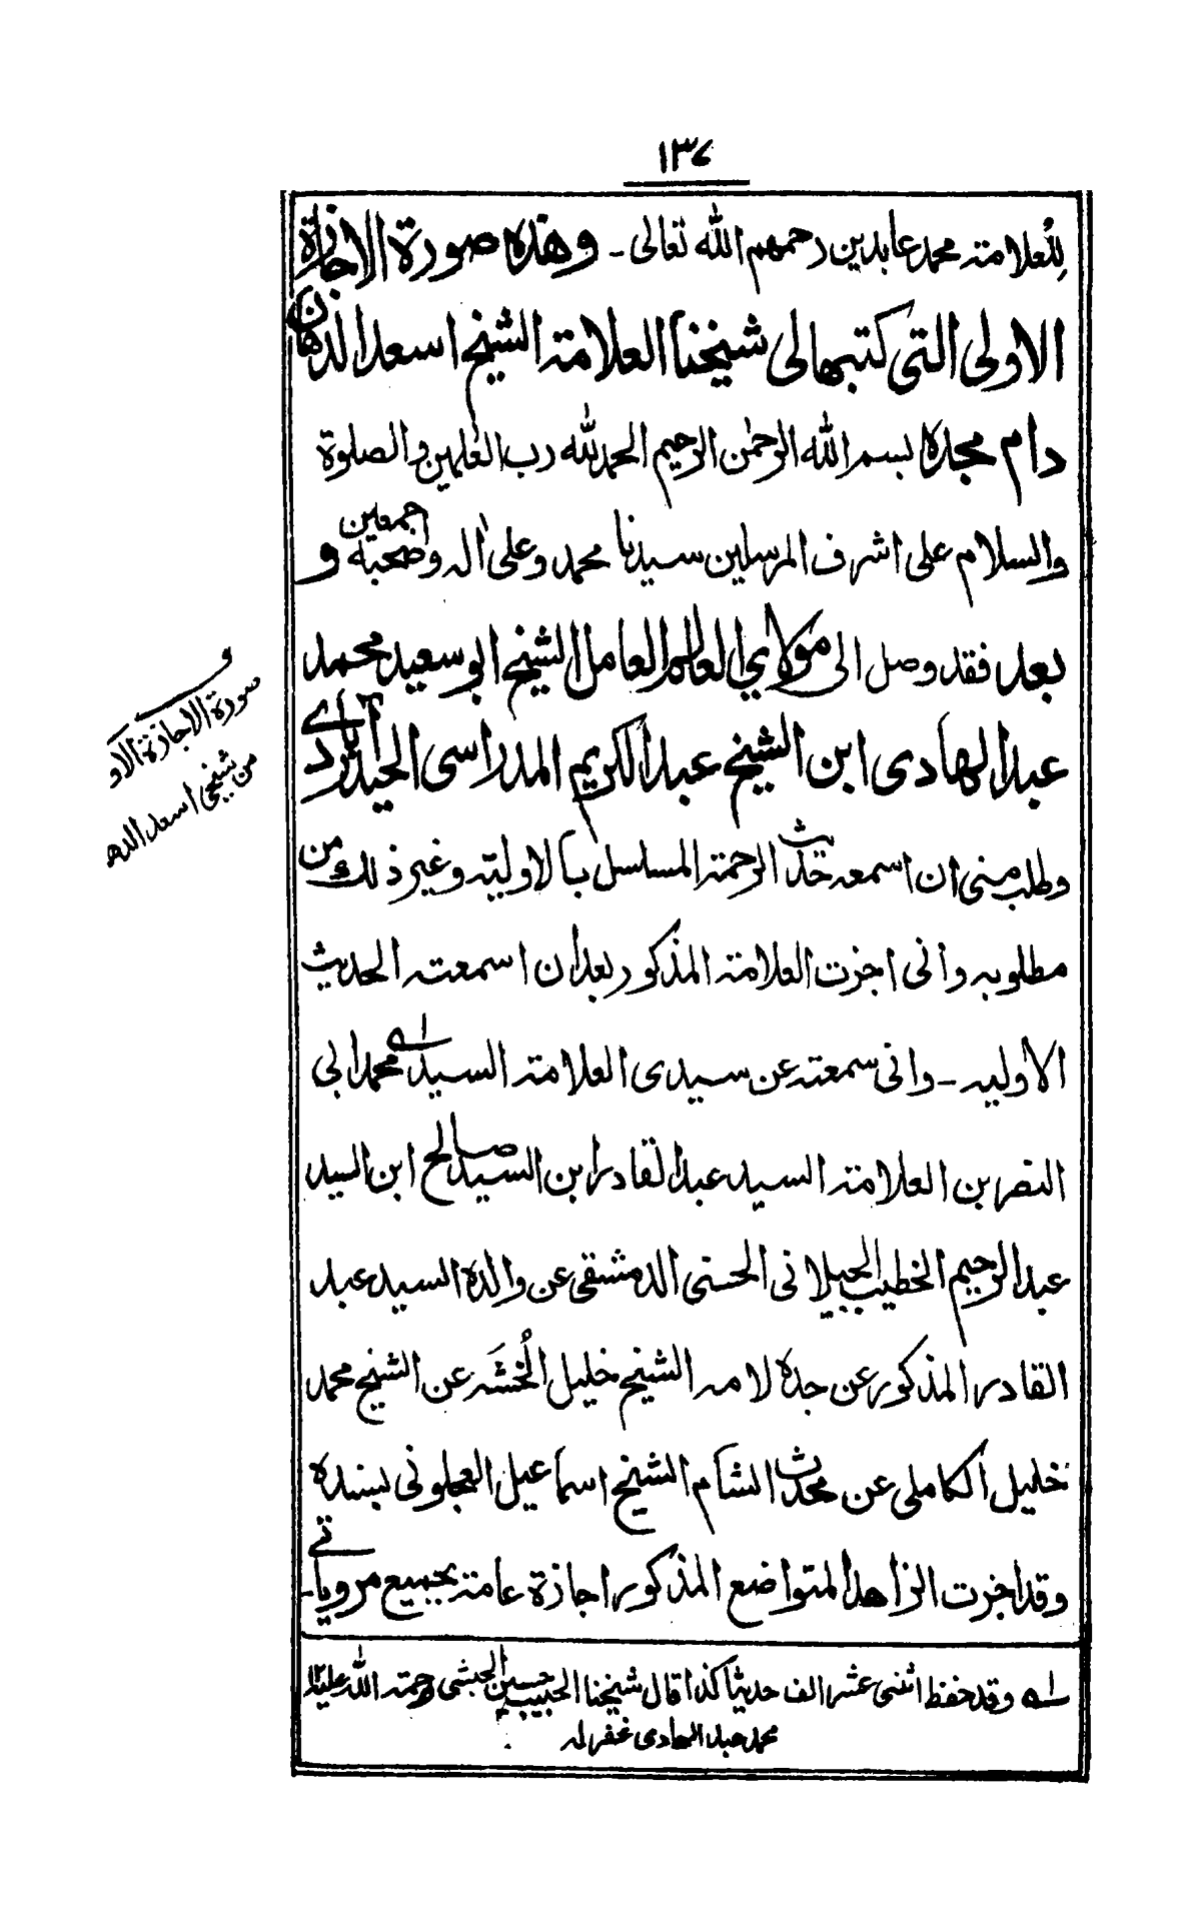 ١٣٧
للعلامة محمد عابدين رحمهم الله تعالى ـ وهذه صورة الاجازة
الاولى التي كتبها لي شيخنا العلامة الشيخ اسعد الدهان
دام مجده بسم الله الرحمٰن الرحيم الحمد لله رب العٰلمين والصلوة
والسلام على اشرف المرسلين سيدنا محمد وعلى اٰله وصحبه اجمعين و
بعد فقد وصل الى مولاي العالم العامل الشيخ ابو سعيد محمد
عبد الهادى ابن الشيخ عبد الكريم المدراسى الحيدرآبادے
وطلب منى ان اسمعه حديث الرحمة المسلسل بالاولية وغير ذلك من
مطلوبه وانى اجزت العلامة المذكور بعد ان اسمعته الحديث
الاوليه ـ وانى سمعته عن سيدى العلامة السيد محمد ابى
النصر بن العلامة السيد عبد القادر ابن السيد صالح ابن السيد
عبد الرحيم الخطيب الجيلانى الحسنى الدمشقى عن والده السيد عبد
القادر المذكور عن جده لامه الشيخ خليل الخُشَه عن الشيخ محمد
خليل الكاملى عن محدث الشام الشيخ اسماعيل العجلونى بسنده
وقد اجزت الزاهد المتواضع المذكور اجازة عامة بجميع مروياتے
لے وقد حفظ اثنى عشر الف حديثا كذا قال شيخنا الحبيب حسين الحبشى رحمة الله عليه ١٢
محمد عبد الهادى غفر له
صورة الاجازة الاو
من شيخى اسعد الده